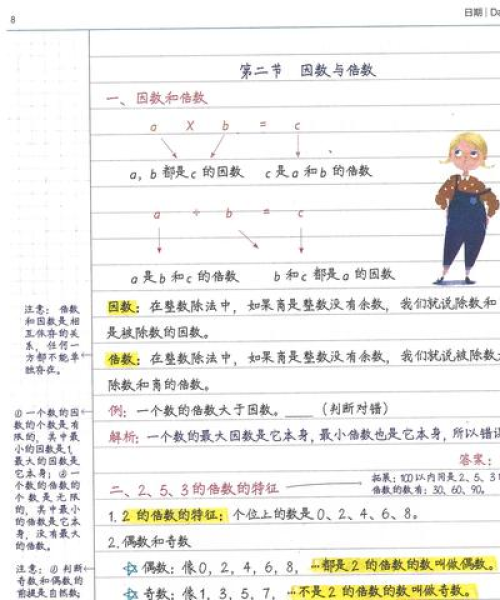 8
日期 | Da
第二节 因数与倍数
一、因数和倍数
a × b = c
a，b 都是 c 的因数 c 是 a 和 b 的倍数
a ÷ b = c
a 是 b 和 c 的倍数 b 和 c 都是 a 的因数
注意：倍数
和因数是相
互依存的关
系，任何一
方都不能单
独存在。
因数：在整数除法中，如果商是整数没有余数，我们就说除数和
是被除数的因数。
倍数：在整数除法中，如果商是整数没有余数，我们就说被除数
除数和商的倍数。
①一个数的因
数的个数是有
限的，其中最
小的因数是1，
最大的因数是
它本身；②一
个数的倍数的
个数是无限
的，其中最小
的倍数是它本
身，没有最大
的倍数。
例：一个数的倍数大于因数。____（判断对错）
解析：一个数的最大因数是它本身，最小倍数也是它本身，所以错误
答案：
二、2、5、3 的倍数的特征
拓展：100以内同是2、5、3
倍数的数有：30、60、90。
1. 2 的倍数的特征：个位上的数是 0、2、4、6、8。
2. 偶数和奇数
注意：①判断
奇数和偶数的
前提是自然数；
偶数：像 0，2，4，6，8，…都是 2 的倍数的数叫做偶数。
奇数：像 1，3，5，7，…不是 2 的倍数的数叫做奇数。